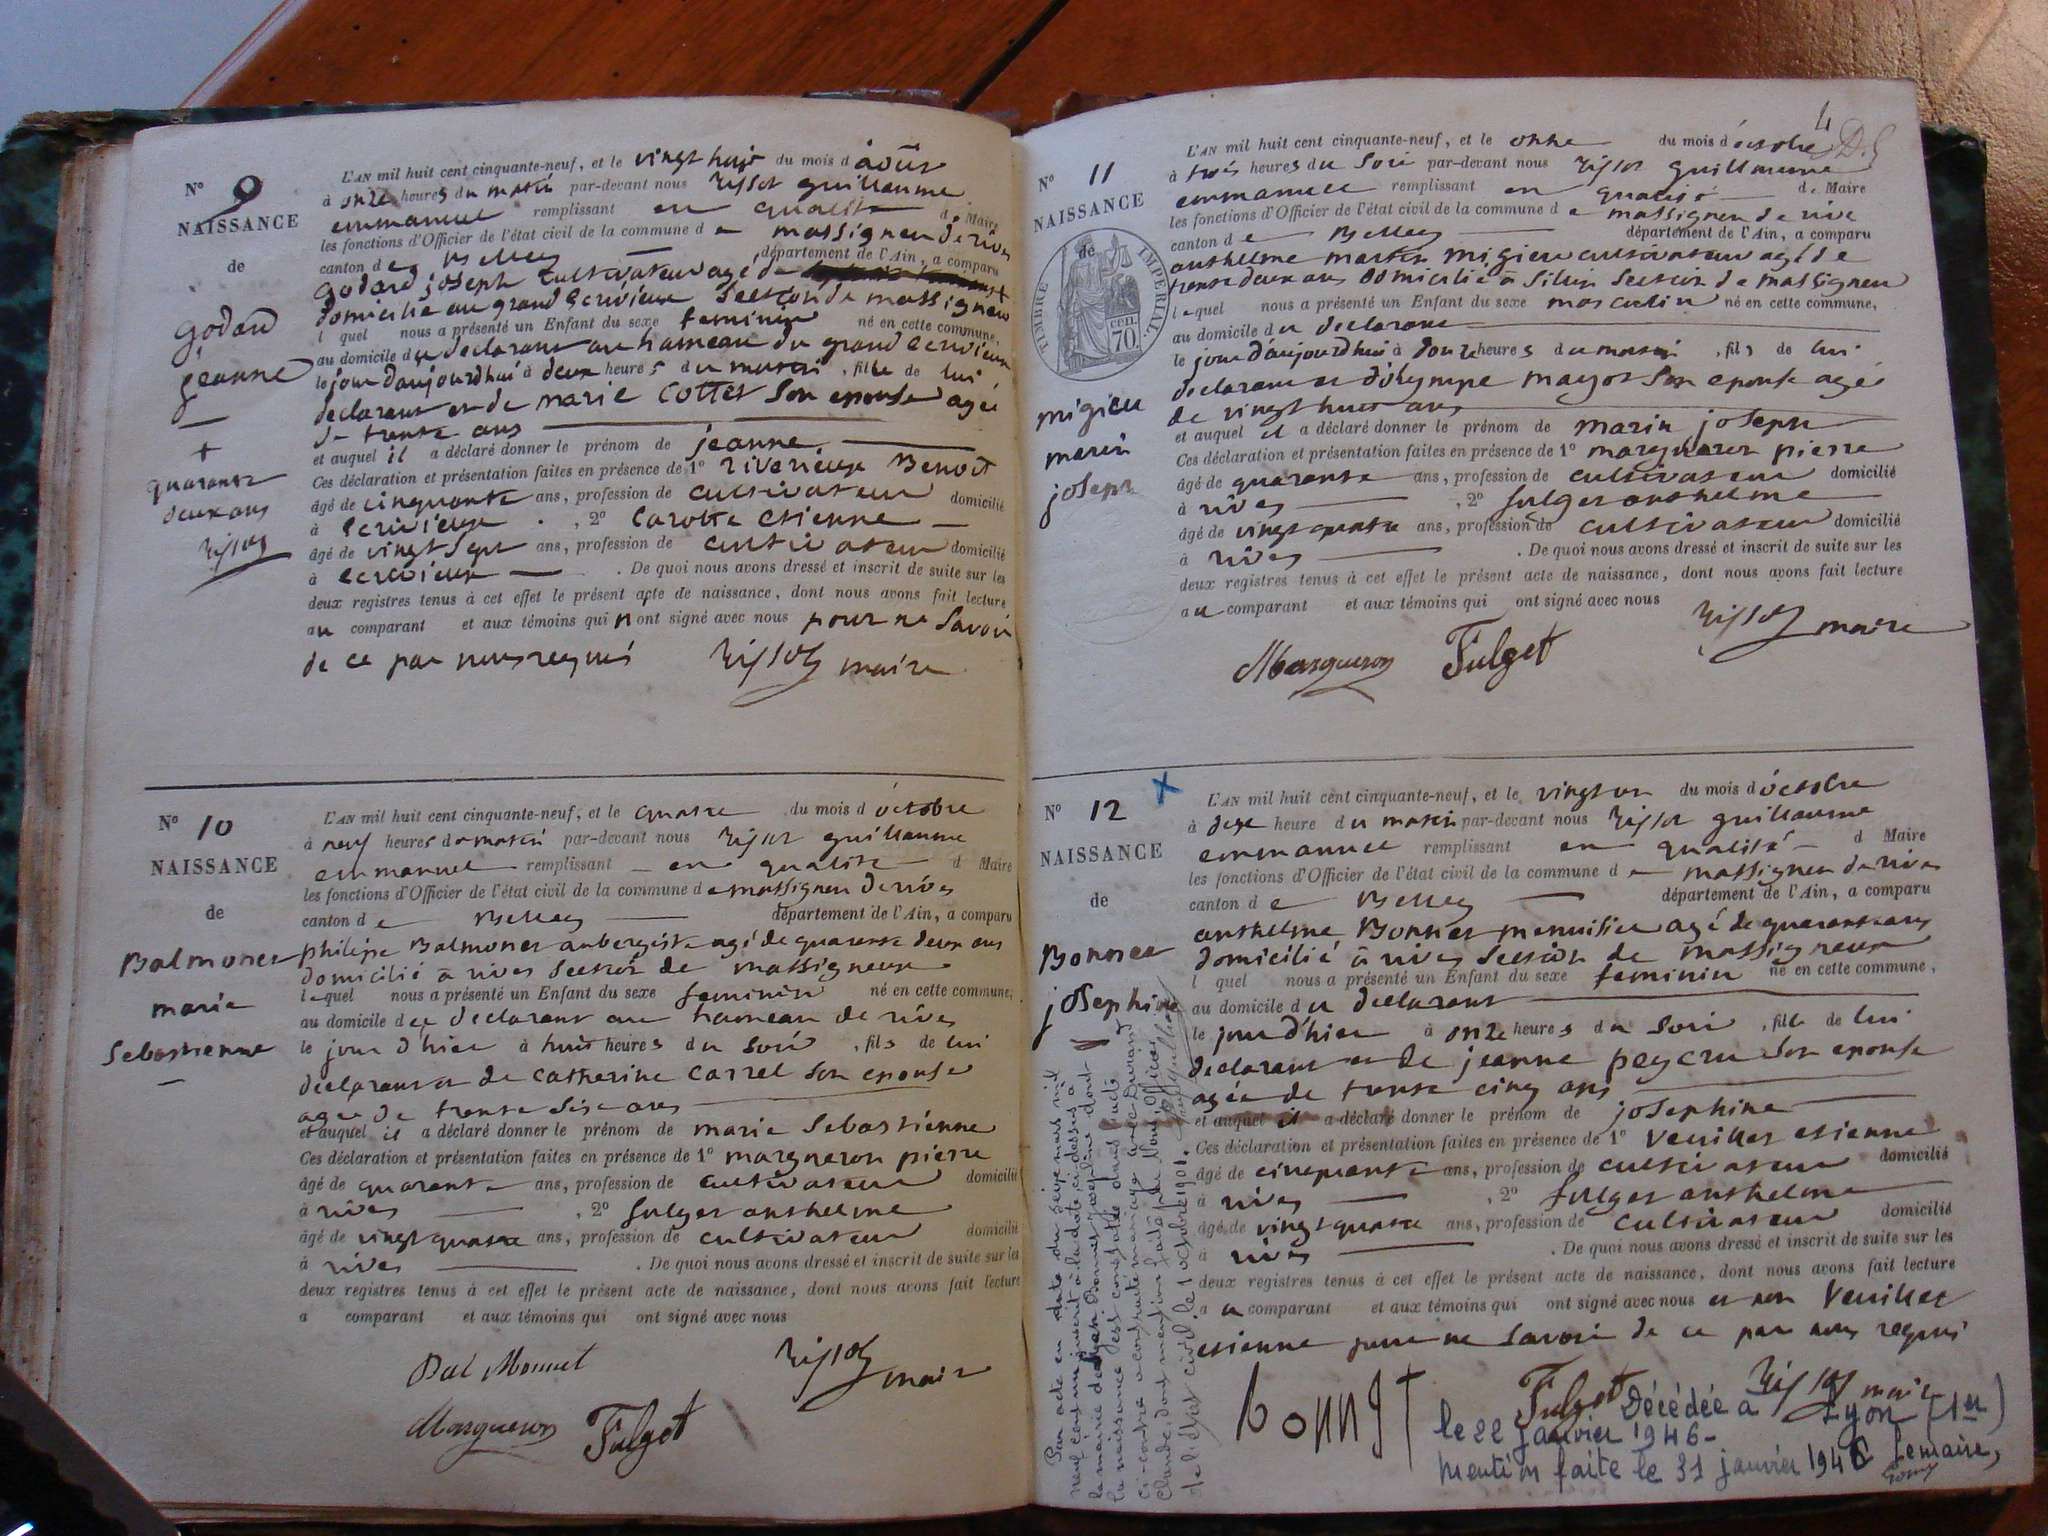 N° 9
NAISSANCE
de
Godard
jeanne
+
quarante
deux ans
Rissot
L'AN mil huit cent cinquante-neuf, et le vingt huit du mois d août
à onze heures du matin par-devant nous Rissot guillaume
emmanuel remplissant en qualité de Maire
les fonctions d'Officier de l'état civil de la commune de massigneu de rives
canton de Belley département de l'Ain, a comparu
godard joseph cultivateur agé de
domicilié au grand Ecrivieux Section de massigneu
lequel nous a présenté un Enfant du sexe feminin né en cette commune,
au domicile du declarant au hameau du grand ecrivieux
le jour daujourdhui à deux heures du matin, fille de lui
declarant et de marie Cottet Son epouse agée
de trente ans
et auquel il a déclaré donner le prénom de jeanne
Ces déclaration et présentation faites en présence de 1° riverieux Benoit
âgé de cinquante ans, profession de cultivateur domicilié
à Ecrivieux, 2° Carotte etienne
âgé de vingt Sept ans, profession de cultivateur domicilié
à ecrivieux. De quoi nous avons dressé et inscrit de suite sur les
deux registres tenus à cet effet le présent acte de naissance, dont nous avons fait lecture
au comparant et aux témoins qui n ont signé avec nous pour ne Savoir
de ce par nous requis Rissot maire
N° 10
NAISSANCE
de
Balmonet
marie
Sebastienne
L'AN mil huit cent cinquante-neuf, et le quatre du mois d octobre
à neuf heures du matin par-devant nous Rissot guillaume
emmanuel remplissant en qualité d Maire
les fonctions d'Officier de l'état civil de la commune de massigneu de rives
canton de Belley département de l'Ain, a comparu
philipe Balmonet aubergiste agé de quarante deux ans
domicilié à rives Section de massigneux
lequel nous a présenté un Enfant du sexe feminin né en cette commune,
au domicile du declarant au hameau de rives
le jour d'hier à huit heures du soir, fils de lui
declarant et de catherine Carrel Son epouse
agée de trente Six ans
et auquel il a déclaré donner le prénom de marie Sebastienne
Ces déclaration et présentation faites en présence de 1° margueron pierre
âgé de quarante ans, profession de cultivateur domicilié
à rives, 2° fulget anthelme
âgé de vingt quatre ans, profession de cultivateur domicilié
à rives. De quoi nous avons dressé et inscrit de suite sur les
deux registres tenus à cet effet le présent acte de naissance, dont nous avons fait lecture
a comparant et aux témoins qui ont signé avec nous
Bal Monnet Rissot maire
Margueron Fulget
4
N° 11
NAISSANCE
de
TIMBRE IMPERIAL
70 cen.
migieu
marin
joseph
L'AN mil huit cent cinquante-neuf, et le onze du mois d'octobre
à trois heures du Soir par-devant nous Rissot guillaume
emmanuel remplissant en qualité de Maire
les fonctions d'Officier de l'état civil de la commune de massigneu de rive
canton de Belley département de l'Ain, a comparu
anthelme martin migieu cultivateur agé de
trente deux ans domicilié à Silin Section de massigneu
lequel nous a présenté un Enfant du sexe masculin né en cette commune,
au domicile du declarant
le jour d'aujourdhui à douze heures du matin, fils de lui
declarant et d'olympe mayot Son epouse agée
de vingt huit ans
et auquel il a déclaré donner le prénom de marin joseph
Ces déclaration et présentation faites en présence de 1° margueron pierre
âgé de quarante ans, profession de cultivateur domicilié
à rives, 2° fulget anthelme
âgé de vingt quatre ans, profession de cultivateur domicilié
à rives. De quoi nous avons dressé et inscrit de suite sur les
deux registres tenus à cet effet le présent acte de naissance, dont nous avons fait lecture
au comparant et aux témoins qui ont signé avec nous
Margueron Fulget Rissot maire
N° 12
NAISSANCE
de
Bonnet
josephine
L'AN mil huit cent cinquante-neuf, et le vingt un du mois d'octobre
à dixe heure du matin par-devant nous Rissot guillaume
emmanuel remplissant en qualité d Maire
les fonctions d'Officier de l'état civil de la commune de massigneu de rives
canton de Belley département de l'Ain, a comparu
anthelme Bonnet menuisier agé de quarante ans
domicilié à rives Section de massigneux
l quel nous a présenté un Enfant du sexe feminin né en cette commune,
au domicile du declarant
le jour d'hier à onze heures du Soir, fille de lui
declarant et de jeanne peycru Son epouse
agée de trente cinq ans
et auquel il a déclaré donner le prénom de josephine
Ces déclaration et présentation faites en présence de 1° Veuillet etienne
âgé de cinquante ans, profession de cultivateur domicilié
à rives, 2° fulget anthelme
âgé de vingt quatre ans, profession de cultivateur domicilié
à rives. De quoi nous avons dressé et inscrit de suite sur les
deux registres tenus à cet effet le présent acte de naissance, dont nous avons fait lecture
au comparant et aux témoins qui ont signé avec nous et non Veuillet
etienne pour ne Savoir de ce par nous requis
bonnet Fulget Rissot maire
Décédée à Lyon (1er)
le 22 janvier 1946-
Mention faite le 31 janvier 1946 Le maire,
Par acte en date du seize mai mil
neuf cent un
la mairie de Lyon Bonnet Joséphine dont
la naissance est constatée dans l'acte
ci-contre a contracté mariage avec Durand
Claude, dont mention faite par Nous Officier
de l'état civil, le 1 octobre 1901.